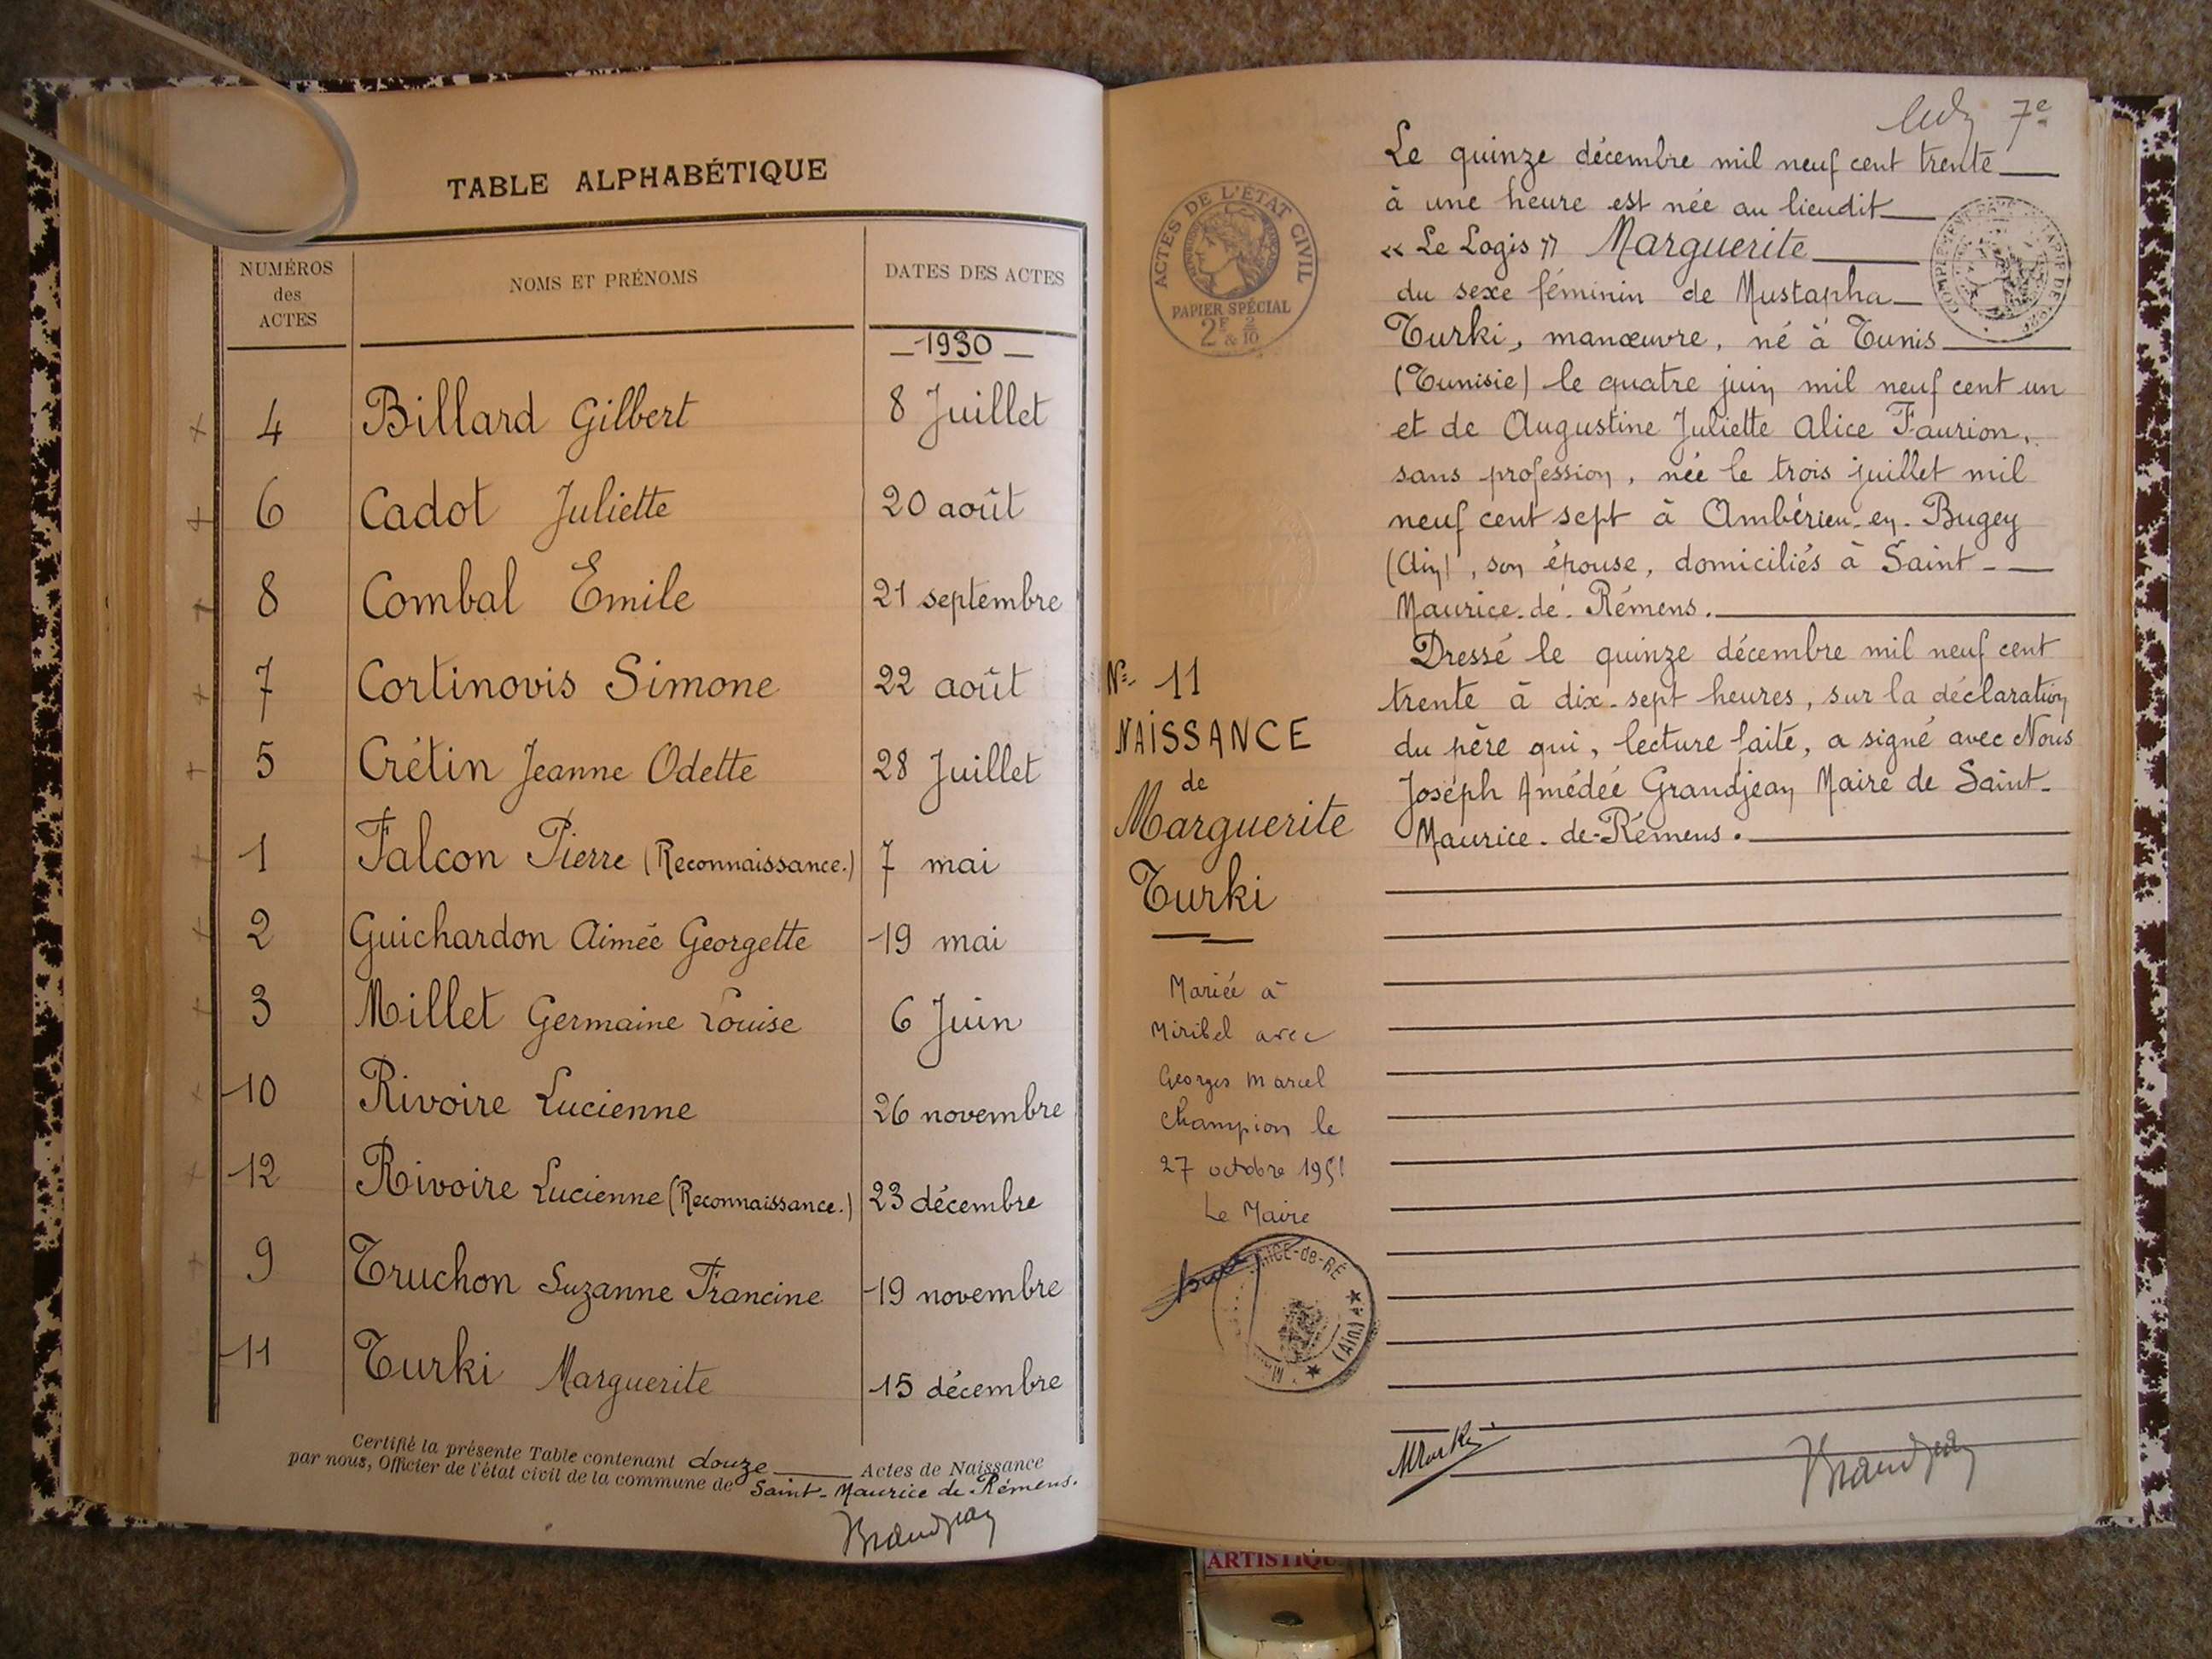 TABLE ALPHABÉTIQUE
NUMÉROS des ACTES
NOMS ET PRÉNOMS
DATES DES ACTES
1930
4 Billard Gilbert 8 Juillet
6 Cadot Juliette 20 août
8 Combal Emile 21 septembre
7 Cortinovis Simone 22 août
5 Crétin Jeanne Odette 28 Juillet
1 Falcon Pierre (Reconnaissance.) 7 mai
2 Guichardon Aimée Georgette 19 mai
3 Millet Germaine Louise 6 Juin
10 Rivoire Lucienne 26 novembre
12 Rivoire Lucienne (Reconnaissance.) 23 décembre
9 Truchon Suzanne Francine 19 novembre
11 Turki Marguerite 15 décembre
Certifié la présente Table contenant douze Actes de Naissance
par nous, Officier de l'état civil de la commune de Saint-Maurice de Rémens.
Grandjean
7e
ACTES DE L'ÉTAT CIVIL
PAPIER SPÉCIAL
2F & 2/10
N° 11
NAISSANCE
de
Marguerite
Turki
Mariée à
Miribel avec
Georges Marcel
Champion le
27 octobre 1951
Le Maire
ICE-de-RÉ
(Ain)
Le quinze décembre mil neuf cent trente
à une heure est née au lieudit
« Le Logis » Marguerite
du sexe féminin de Mustapha
Turki, manœuvre, né à Tunis
(Tunisie) le quatre juin mil neuf cent un
et de Augustine Juliette Alice Faurion,
sans profession, née le trois juillet mil
neuf cent sept à Ambérieu-en-Bugey
(Ain), son épouse, domiciliés à Saint-
Maurice-de-Rémens.
Dressé le quinze décembre mil neuf cent
trente à dix-sept heures, sur la déclaration
du père qui, lecture faite, a signé avec Nous
Joseph Amédée Grandjean Maire de Saint-
Maurice-de-Rémens.
MTurki
Grandjean
ARTISTIQU